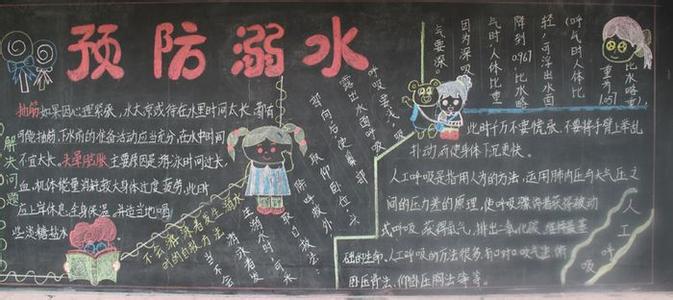 预防溺水
解决问题
抽筋如果因心理紧张，水太凉或待在水里时间太长，都有
可能抽筋，下水前的准备活动应当充分，在水中时间
不宜太长。头晕脑胀主要原因是游泳时间过长，
血，机体能量消耗较大身体过度疲劳，此时
应上岸休息，全身保温，并适当地喝
些淡糖盐水
不会游泳者发生溺水
时的自救方法
呼吸要浅，吸
气要深。
因为深吸
气时，人体比重
降到0.967，比水略
轻，可浮出水面
（呼气时人体比
重为1.057
比水略重）
此时千万不要慌张，不要将手臂上举乱
扑动而使身体下沉更快。
人工呼吸是指用人为的方法，运用肺内压与大气压之
间的压力差的原理，使呼吸骤停者获得被动
式呼吸，获得氧气，排出二氧化碳，维持最基
础的生命，人工呼吸的方法很多，有口对口吹气法、俯
卧压背法、仰卧压胸法等等。
人工呼吸